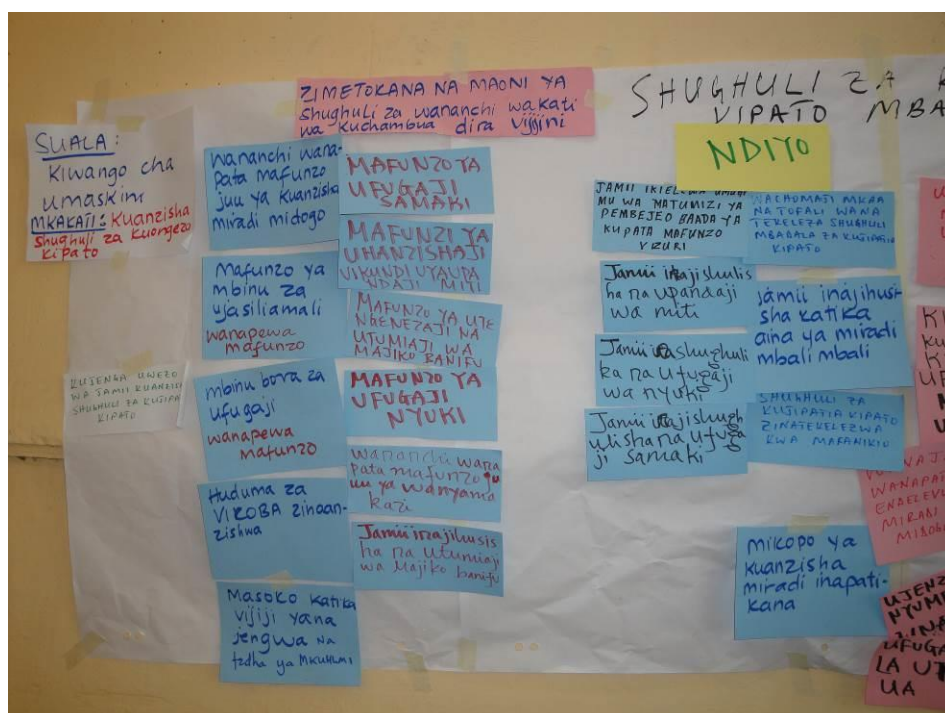 SUALA:
Kiwango cha
umaskini
MKAKATI: Kuanzisha
shughuli za kuongeza
kipato
KUJENGA UWEZO
WA JAMII KUANZISHA
SHUGHULI ZA KUJIPA
KIPATO
ZIMETOKANA NA MAONI YA
shughuli za wananchi wakati
wa kuchambua dira vijijini
Wananchi wana-
pata mafunzo
juu ya kuanzisha
miradi midogo
Mafunzo ya
mbinu za
ujasiliamali
wanapewa
mafunzo
mbinu bora za
ufugaji
wanapewa
mafunzo
Huduma za
VIKOBA zinaan-
zishwa
Masoko katika
vijiji yana
jengwa na
fedha ya MKUHUMI
MAFUNZO YA
UFUGAJI
SAMAKI
MAFUNZI YA
UHANZISHAJI
VIKUNDI VYAUPA
NDAJI MITI
MAFUNZO YA UTE
NGENEZAJI NA
UTUMIAJI WA
MAJIKO BANIFU
MAFUNZO YA
UFUGAJI
NYUKI
pata mafunzo ju
uu ya wanyama
kazi
Jamii inajihusis
ha na utumiaji
wa Majiko banifu
SHUGHULI ZA
VIPATO MBA
NDIYO
JAMII IKIELEWA UMUHI
MU WA MATUMIZI YA
PEMBEJEO BAADA YA
KUPATA MAFUNZO
VIZURI
Jamii inajishulis
ha na upandaji
wa miti
Jamii inashughuli
ka na ufugaji
wa nyuki
Jamii inajishugh
ulisha na ufuga
ji samaki
WACHOMAJI MKAA
NA TOFALI WANA
TEKELEZA SHUGHULI
MBADALA ZA KUJIPATIA
KIPATO
jamii inajihusi-
sha katika
aina ya miradi
mbali mbali
SHUGHULI ZA
KUJIPATIA KIPATO
ZINATEKELEZWA
KWA MAFANIKIO
mikopo ya
kuanzisha
miradi inapati-
kana
WANAPA
ENDELEV
MIRADI
UJENZ
NYUM
UFUGA
LA UT
UA